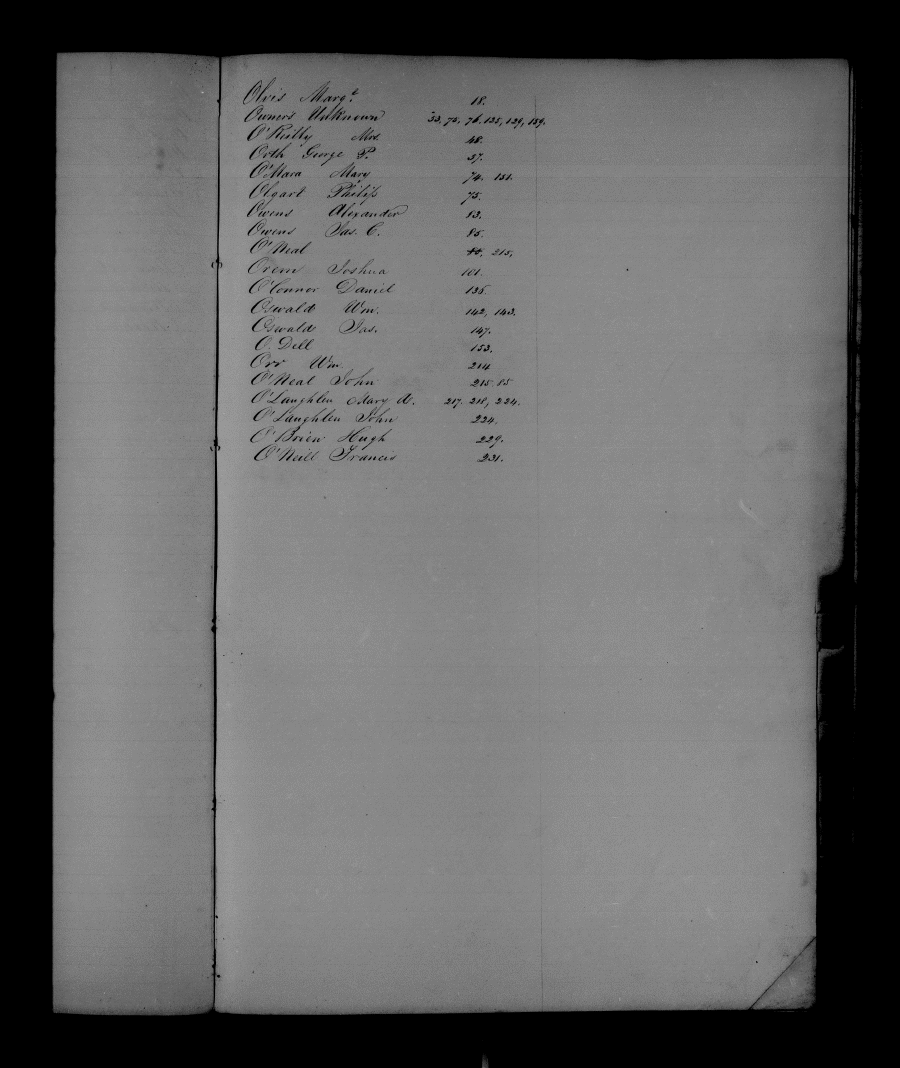 Olvis Margt. 18.
Owners Unknown 33, 75, 76, 135, 139, 159.
O'Reilly Mrs 48.
Orth George P. 57.
O'Mara Mary 74. 151.
Olgart Philip 75.
Owens Alexander 83.
Owens Jas. C. 85.
O'Neal 215,
Orem Joshua 101.
O'Connor Daniel 135.
Oswald Wm. 142, 143.
Oswald Jas. 147.
O. Dell 153.
Orr Wm. 214
O'Neal John 215. 85
O'Laughlen Mary 217. 218, 224.
O'Laughlen John 224.
O'Brien Hugh 229.
O'Neill Francis 231.